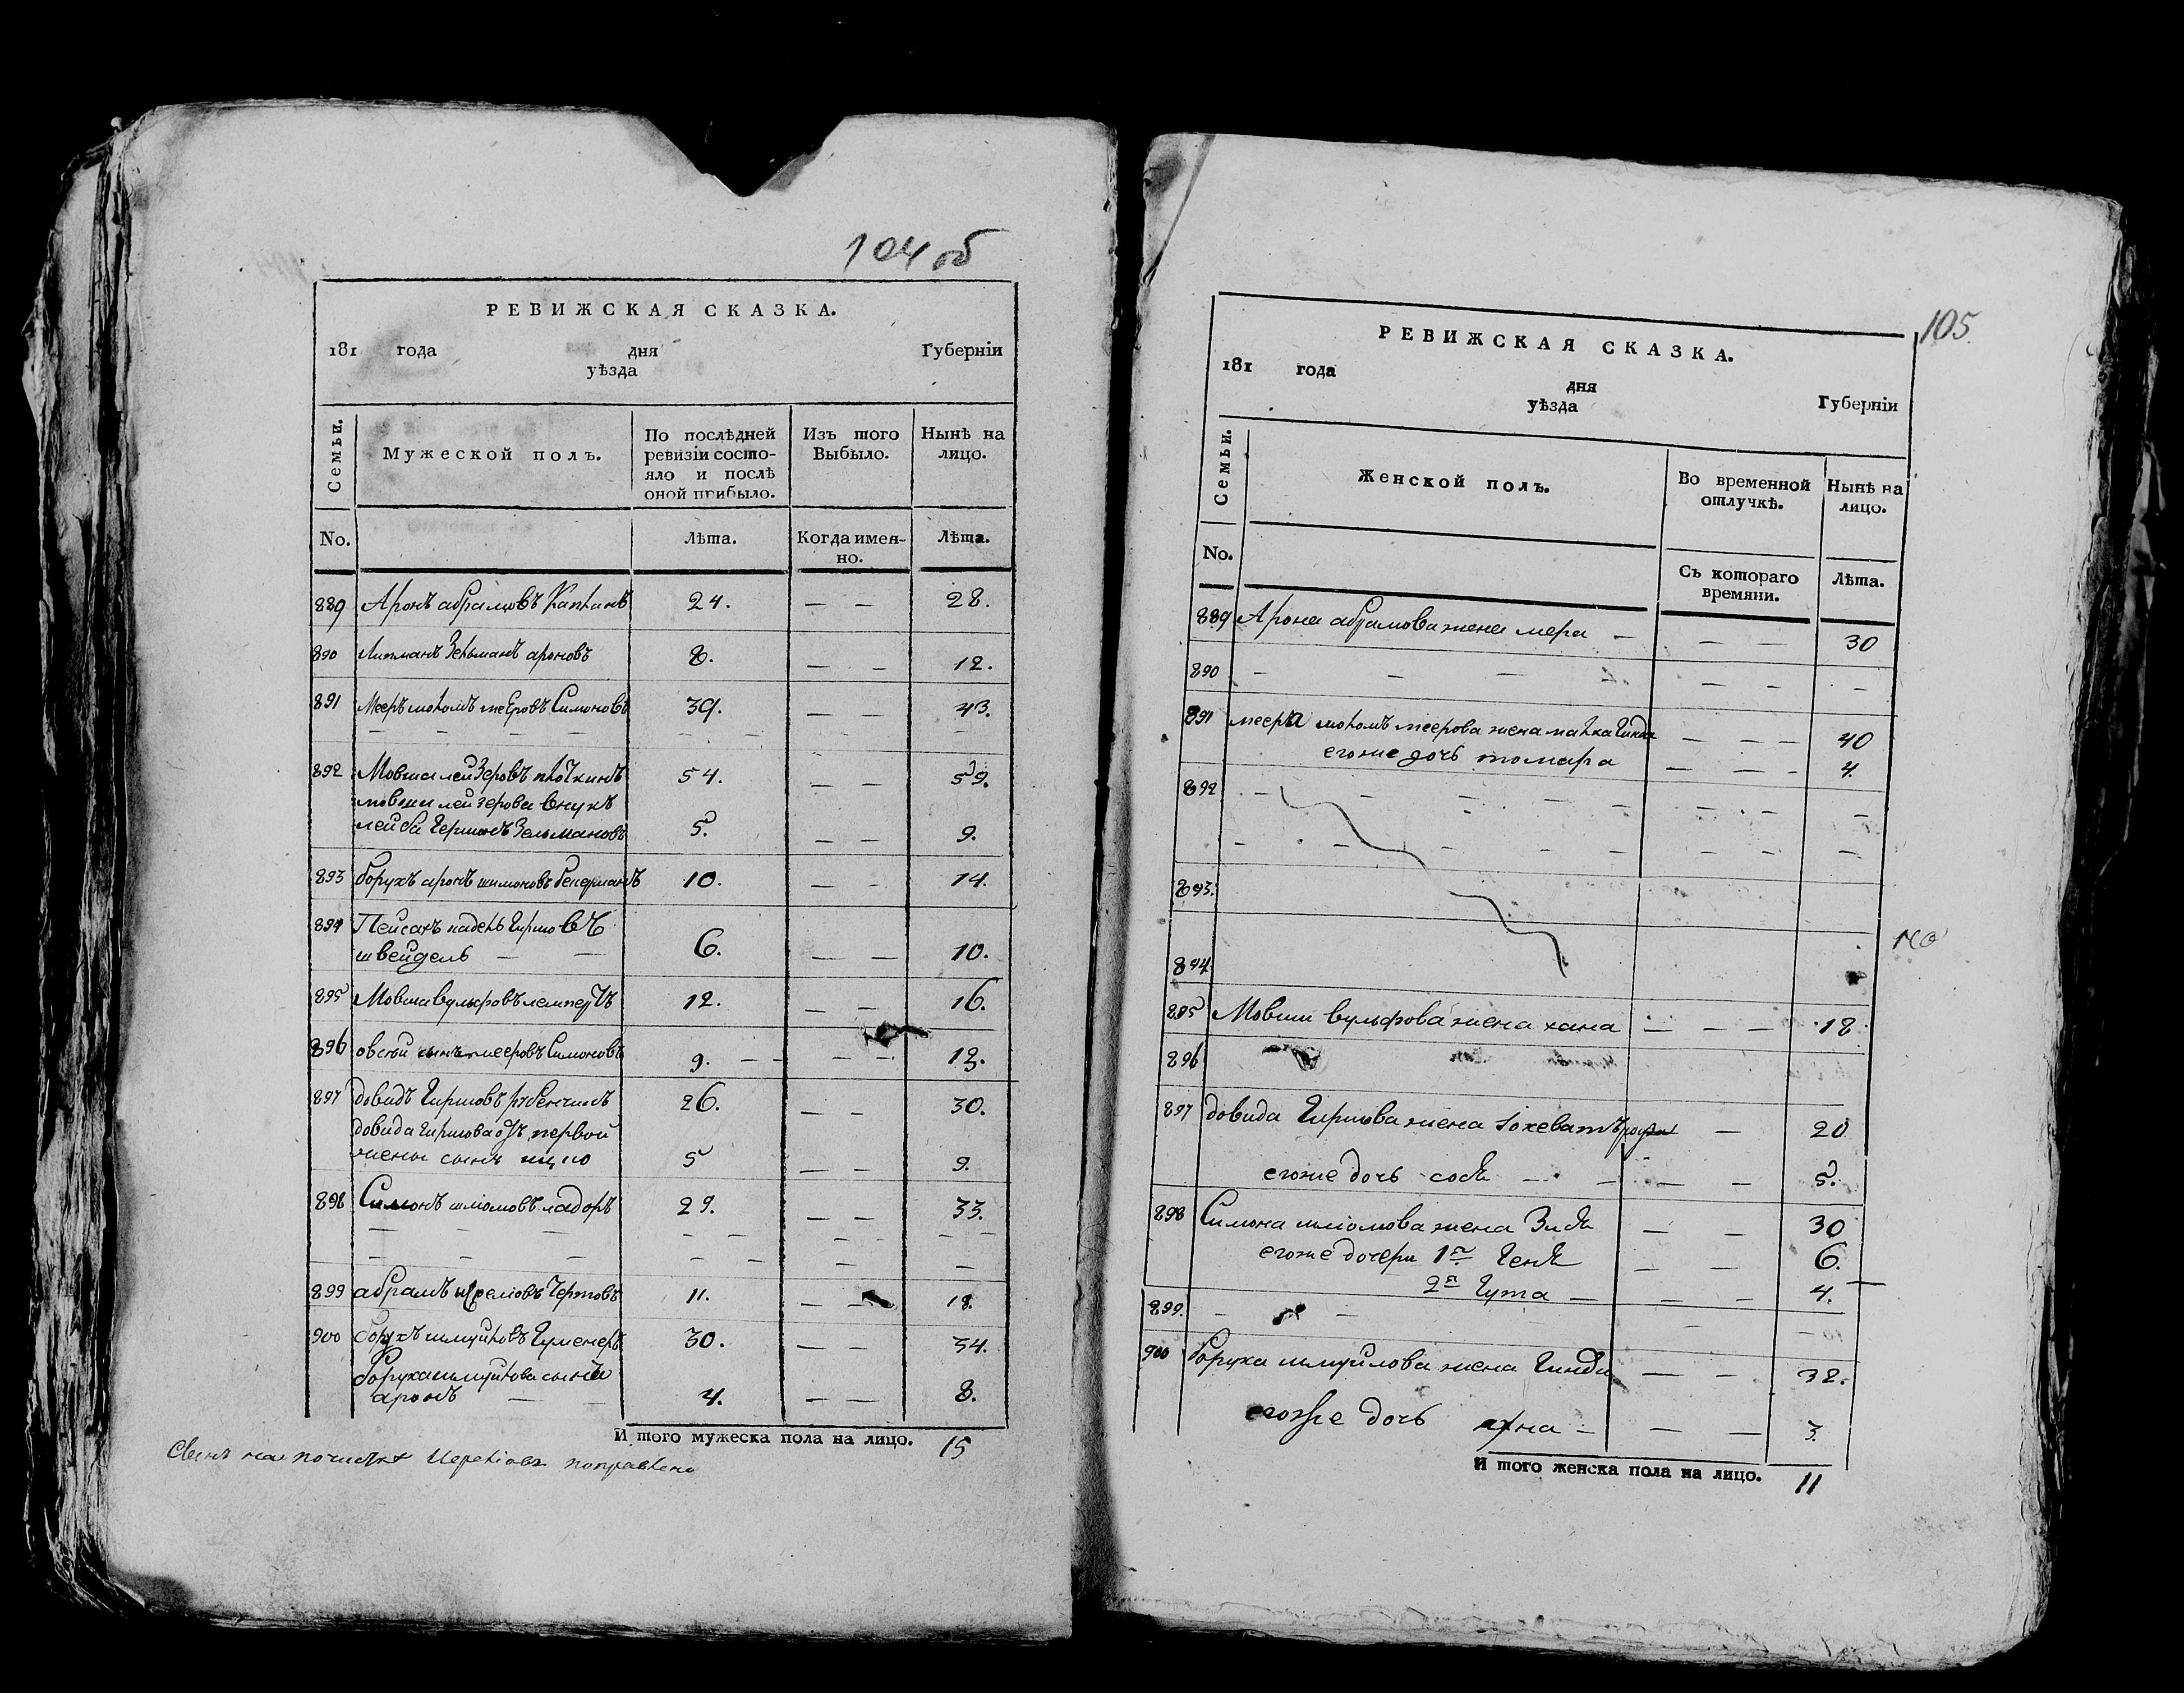 104 об
РЕВИЖСКАЯ СКАЗКА.
181 года дня Губерніи
уѣзда
Семьи. Мужеской полъ. По послѣдней ревизіи состояло и послѣ оной прибыло. Изъ того Выбыло. Нынѣ на лицо.
No. Лѣта. Когда именно. Лѣта.
889 Аронъ абрамовъ Капланъ 24. — — 28.
890 Липманъ Зельманъ ароновъ 8. — — 12.
891 Мееръ шоломъ мееровъ Симоновъ 39. — — 43.
892 Мовша лейзеровъ плоткинъ 54. — — 59.
мовши лейзерова внукъ
лейба гершонъ Зельмановъ 5. — — 9.
893 борухъ аронъ шимоновъ 10. — — 14.
894 Пейсахъ гиршовъ
швейдель — — 6. — — 10.
895 Мовша вульфовъ лемпертъ 12. — — 16.
896 овсѣй мееровъ Симоновъ 9. — — — — 13.
897 довидъ гиршовъ рубенчикъ 26. — — 30.
довида гиршова отъ первой
жены сынъ ицко 5 — — 9.
898 Симонъ шліомовъ ладоръ 29. — — 33.
899 абрамъ чертовъ 11. — — 18.
900 борухъ шмуйловъ 30. — — 34.
боруха шмуйлова сынъ
аронъ — — 4. — — 8.
И того мужеска пола на лицо. 15
поправлено
105.
РЕВИЖСКАЯ СКАЗКА.
181 года дня Губерніи
уѣзда
Семьи. Женской полъ. Во временной отлучкѣ. Нынѣ на лицо.
No. Съ котораго времяни. Лѣта.
889 Арона абрамова жена мера — — — 30
890 — — — — — —
891 меера шоломъ меерова жена малка гинда — — — 40
егоже дочь томара — — — 4.
892 — — — — — — — — —
— — — — — — — — —
893.
894
895 Мовши вульфова жена хана — — — 18
896
897 довида гиршова жена іохеватъ — 20
егоже дочь сося — — — — 5.
898 Симона шліомова жена Злата — — 30
егоже дочери 1я геня — — 6.
2я гута — — — 4.
899. — — — —
900 боруха шмуйлова жена гинда — — 32.
егоже дочь хана — — — 3.
И того женска пола на лицо. 11